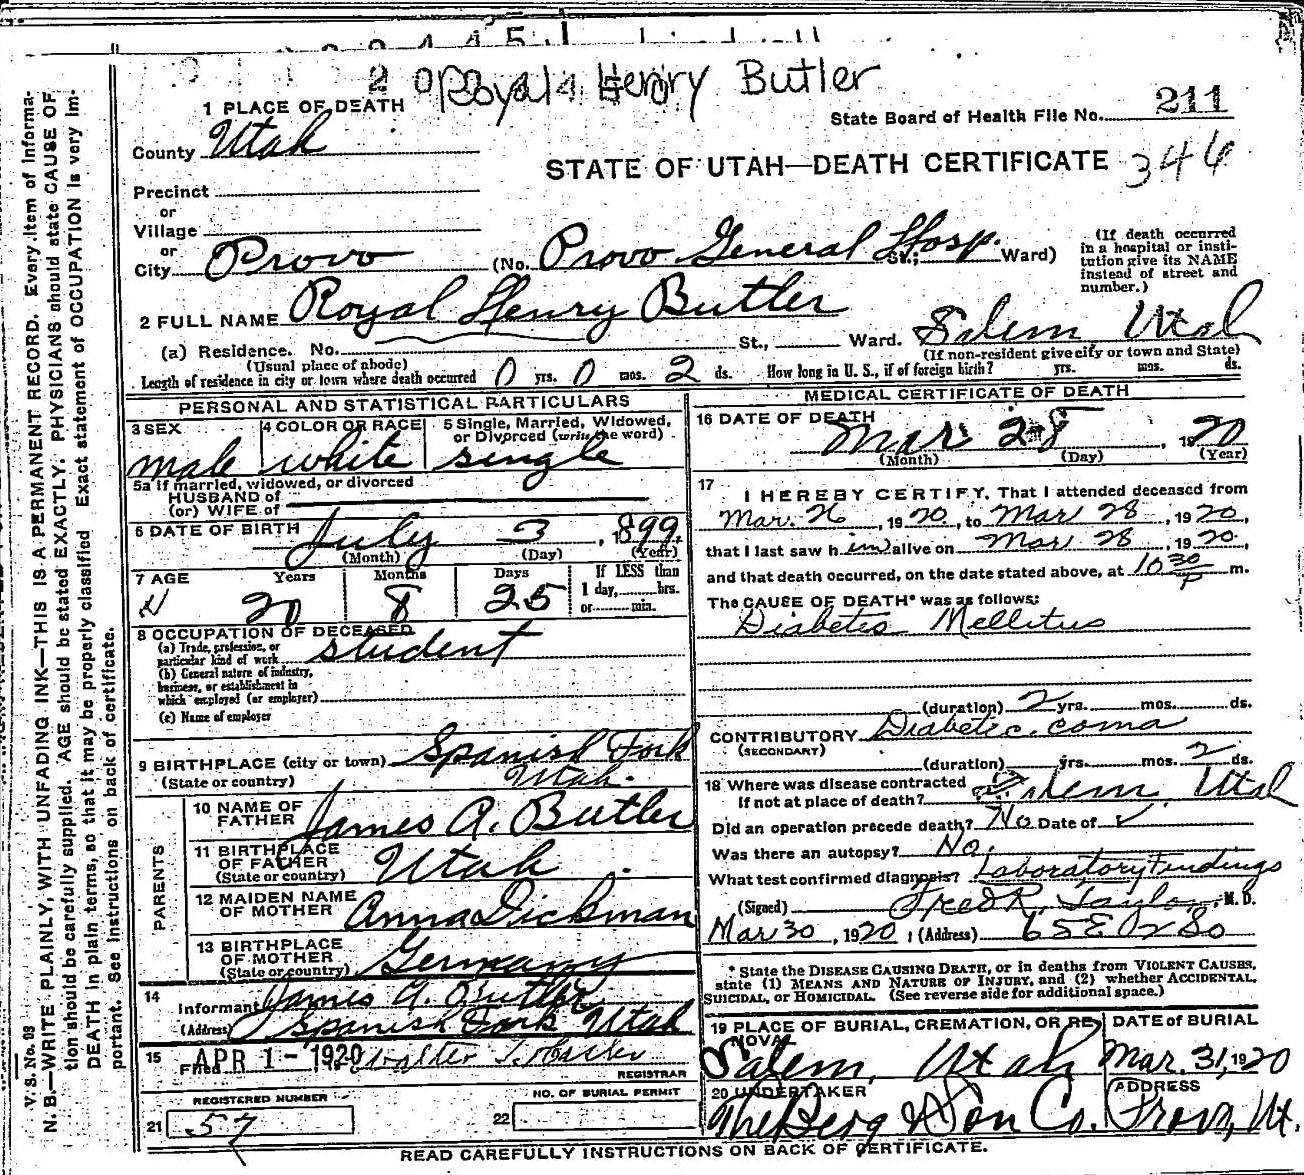 Royal Henry Butler
1 PLACE OF DEATH
State Board of Health File No. 211
County Utah
STATE OF UTAH—DEATH CERTIFICATE 346
Precinct
or
Village
or
City Provo (No. Provo General Hosp. St.; Ward)
(If death occurred
in a hospital or insti-
tution give its NAME
instead of street and
number.)
2 FULL NAME Royal Henry Butler
(a) Residence. No. St., Ward. Salem Utah
(Usual place of abode) (If non-resident give city or town and State)
Length of residence in city or town where death occurred 0 yrs. 0 mos. 2 ds. How long in U. S., if of foreign birth? yrs. mos. ds.
PERSONAL AND STATISTICAL PARTICULARS
3 SEX 4 COLOR OR RACE 5 Single, Married, Widowed,
or Divorced (write the word)
male white single
5a If married, widowed, or divorced
HUSBAND of
(or) WIFE of
6 DATE OF BIRTH July 3, 1899
(Month) (Day) (Year)
7 AGE Years Months Days If LESS than
1 day, hrs.
or min.
20 8 25
8 OCCUPATION OF DECEASED
(a) Trade, profession, or
particular kind of work student
(b) General nature of industry,
business, or establishment in
which employed (or employer)
(c) Name of employer
9 BIRTHPLACE (city or town) Spanish Fork
(State or country) Utah.
PARENTS
10 NAME OF
FATHER James A. Butler
11 BIRTHPLACE
OF FATHER
(State or country) Utah
12 MAIDEN NAME
OF MOTHER Anna Dickman
13 BIRTHPLACE
OF MOTHER
(State or country) Germany
14
Informant James A. Butler
(Address) Spanish Fork Utah
15
Filed APR 1 - 1920 Walter T.
REGISTRAR
REGISTERED NUMBER NO. OF BURIAL PERMIT
21 57 22
MEDICAL CERTIFICATE OF DEATH
16 DATE OF DEATH
Mar 28, 1920
(Month) (Day) (Year)
17
I HEREBY CERTIFY, That I attended deceased from
Mar. 26, 1920, to Mar 28, 1920,
that I last saw him alive on Mar 28, 1920,
and that death occurred, on the date stated above, at 10 30 P m.
The CAUSE OF DEATH* was as follows:
Diabetis Mellitus
(duration) 2 yrs. mos. ds.
CONTRIBUTORY Diabetic coma
(SECONDARY)
(duration) yrs. mos. 2 ds.
18 Where was disease contracted
If not at place of death? Salem, Utah
Did an operation precede death? No Date of ✓
Was there an autopsy? No.
What test confirmed diagnosis? Laboratory Findings
(Signed) Fred R. Taylor, M. D.
Mar 30, 1920; (Address)
* State the DISEASE CAUSING DEATH, or in deaths from VIOLENT CAUSES,
state (1) MEANS AND NATURE OF INJURY, and (2) whether ACCIDENTAL,
SUICIDAL, or HOMICIDAL. (See reverse side for additional space.)
19 PLACE OF BURIAL, CREMATION, OR RE-
MOVAL
DATE of BURIAL
Salem, Utah Mar. 31, 1920
20 UNDERTAKER ADDRESS
The Berg & Son Co. Provo, Ut.
READ CAREFULLY INSTRUCTIONS ON BACK OF CERTIFICATE.
V. S. No. 98
N. B.—WRITE PLAINLY, WITH UNFADING INK—THIS IS A PERMANENT RECORD. Every item of informa-
tion should be carefully supplied. AGE should be stated EXACTLY. PHYSICIANS should state CAUSE OF
DEATH in plain terms, so that it may be properly classified. Exact statement of OCCUPATION is very im-
portant. See instructions on back of certificate.